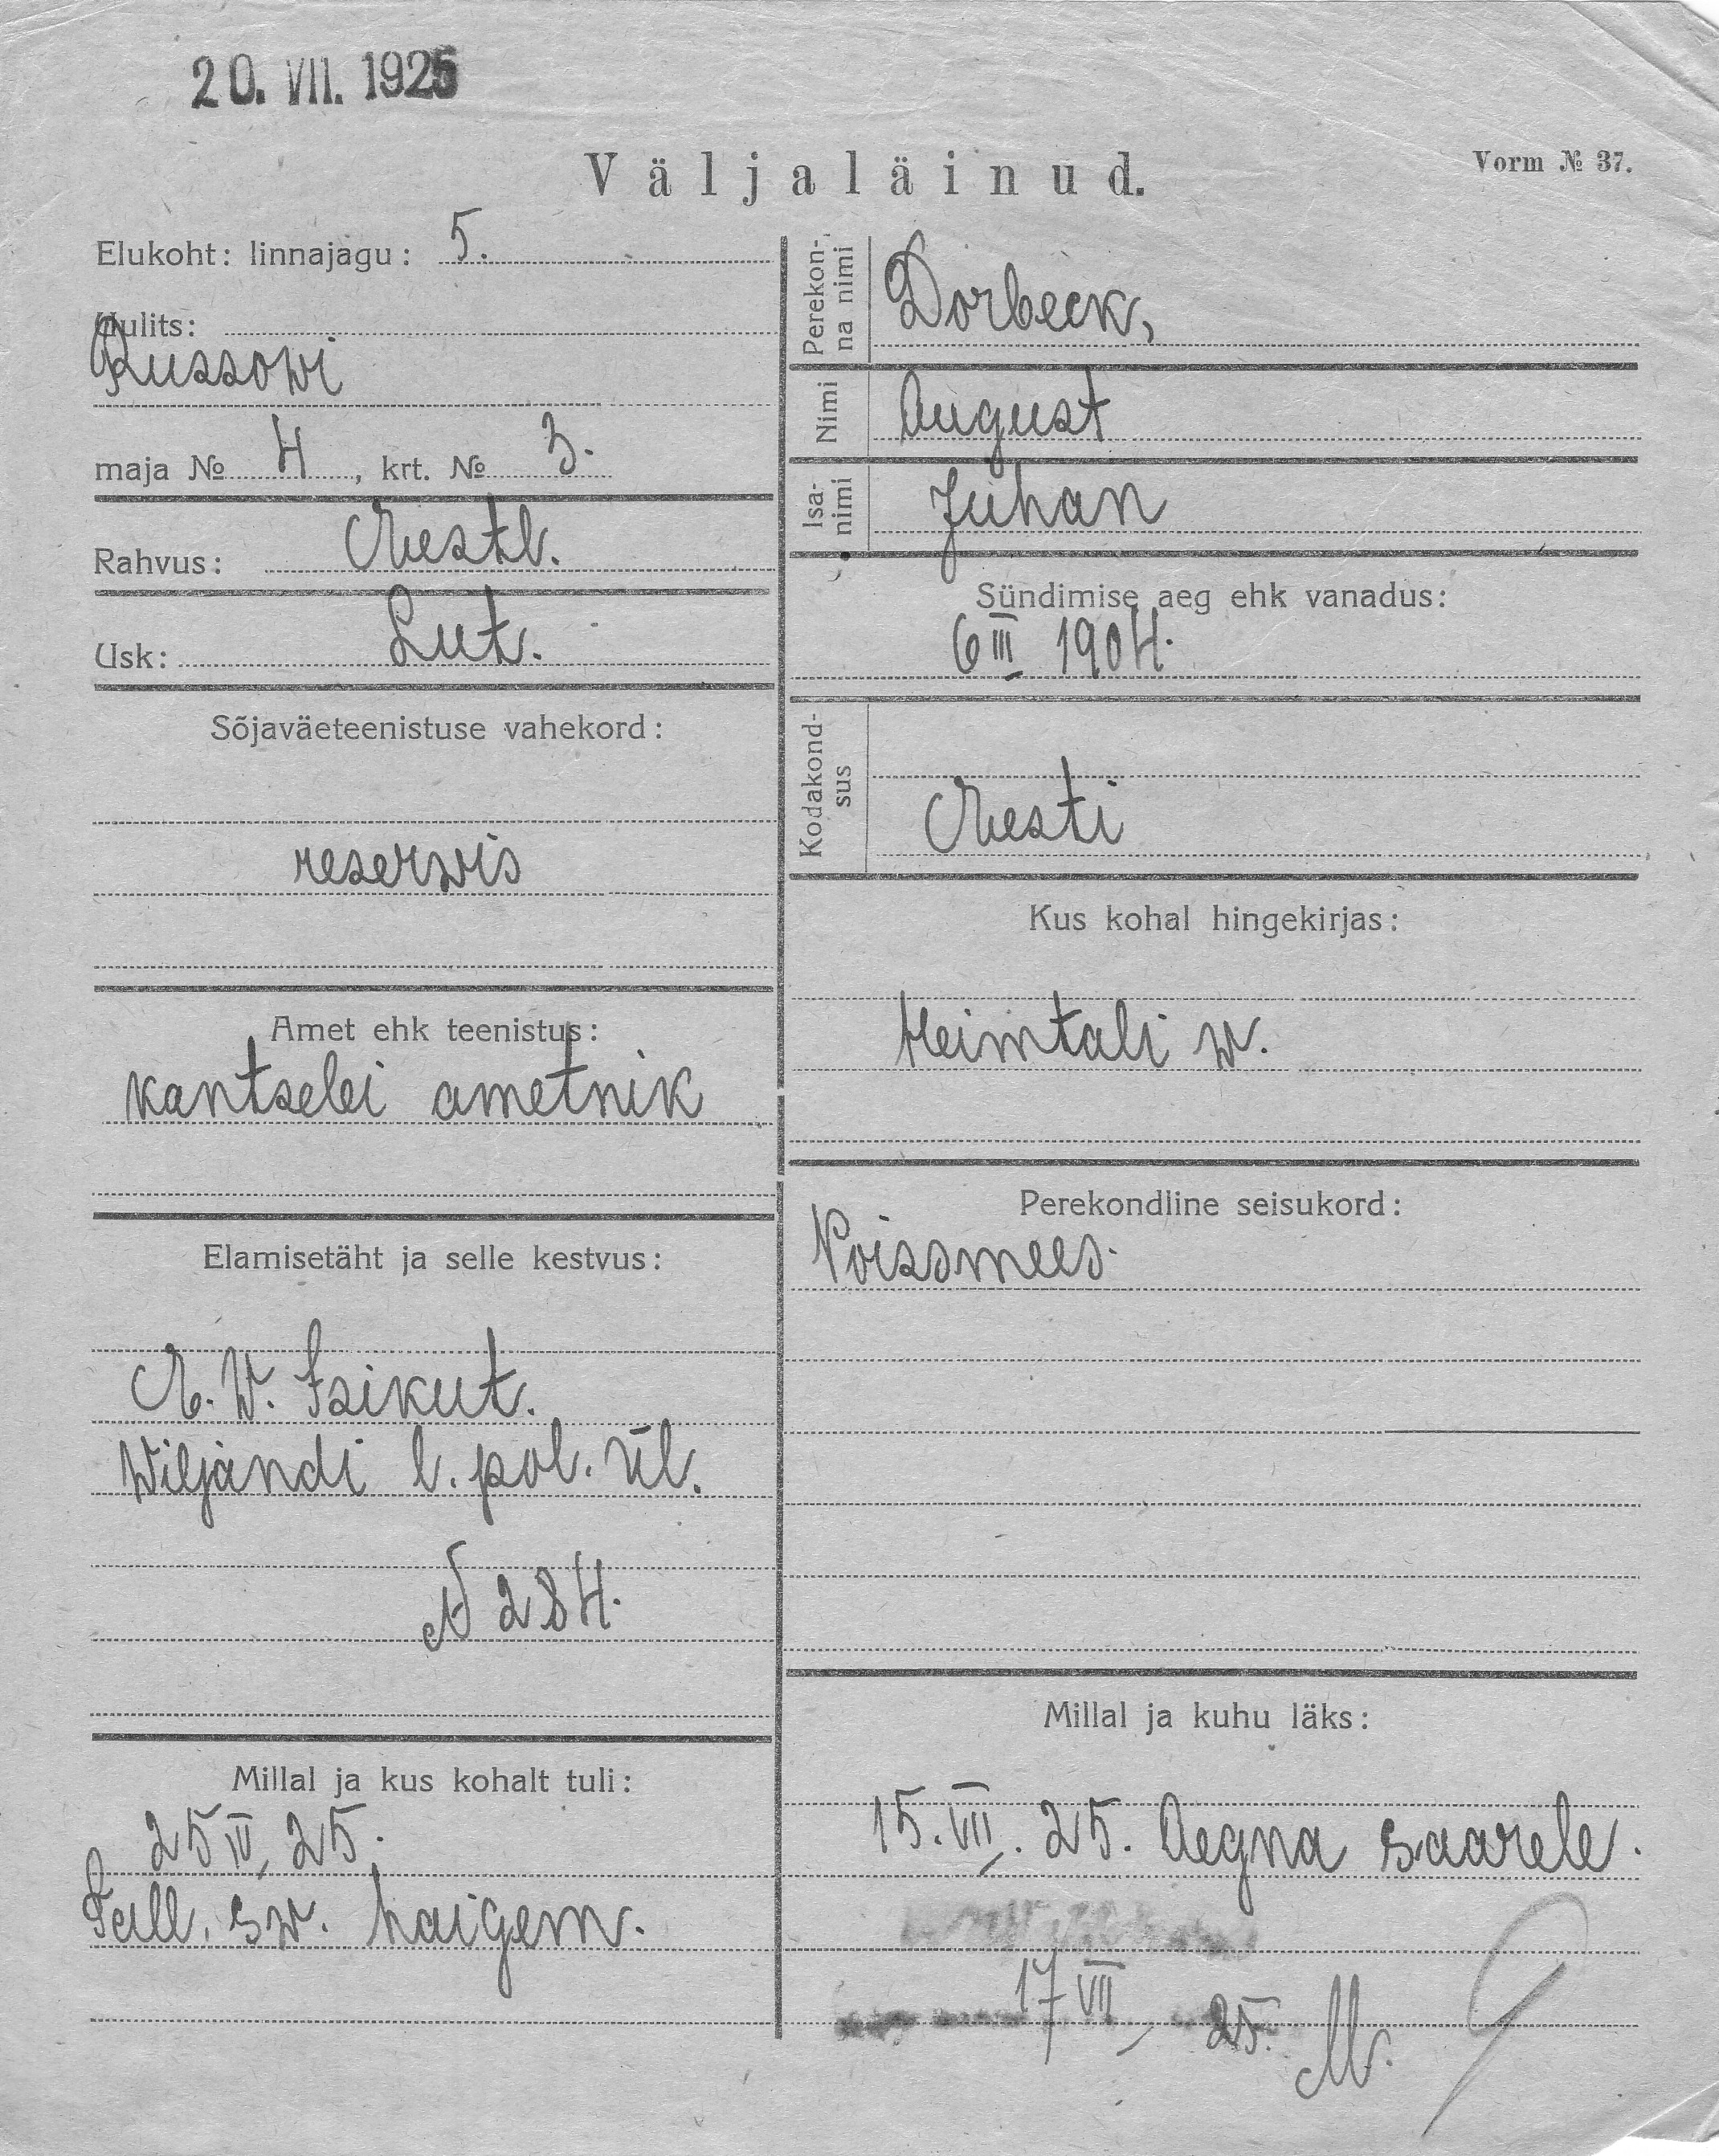 20. VII. 1925
Väljaläinud.
Vorm № 37.
Elukoht: linnajagu: 5.
Uulits:
Russowi
maja № 4, krt. № 3.
Rahvus: Eestl.
Usk: Lut.
Sõjaväeteenistuse vahekord:
reserwis
Amet ehk teenistus:
kantselei ametnik
Elamisetäht ja selle kestvus:
E. W. Isikut.
Wiljandi l. pol. ül.
N 284.
Millal ja kus kohalt tuli:
25 IV 25.
Tall. sw. haigem.
Perekon-
na nimi
Dorbeck,
Nimi
August
Isa-
nimi
Juhan
Sündimise aeg ehk vanadus:
6 III 1904.
Kodakond-
sus
Eesti
Kus kohal hingekirjas:
Heimtali w.
Perekondline seisukord:
Poissmees.
Millal ja kuhu läks:
15. VII. 25. Aegna saarele.
17 VII 25. M.